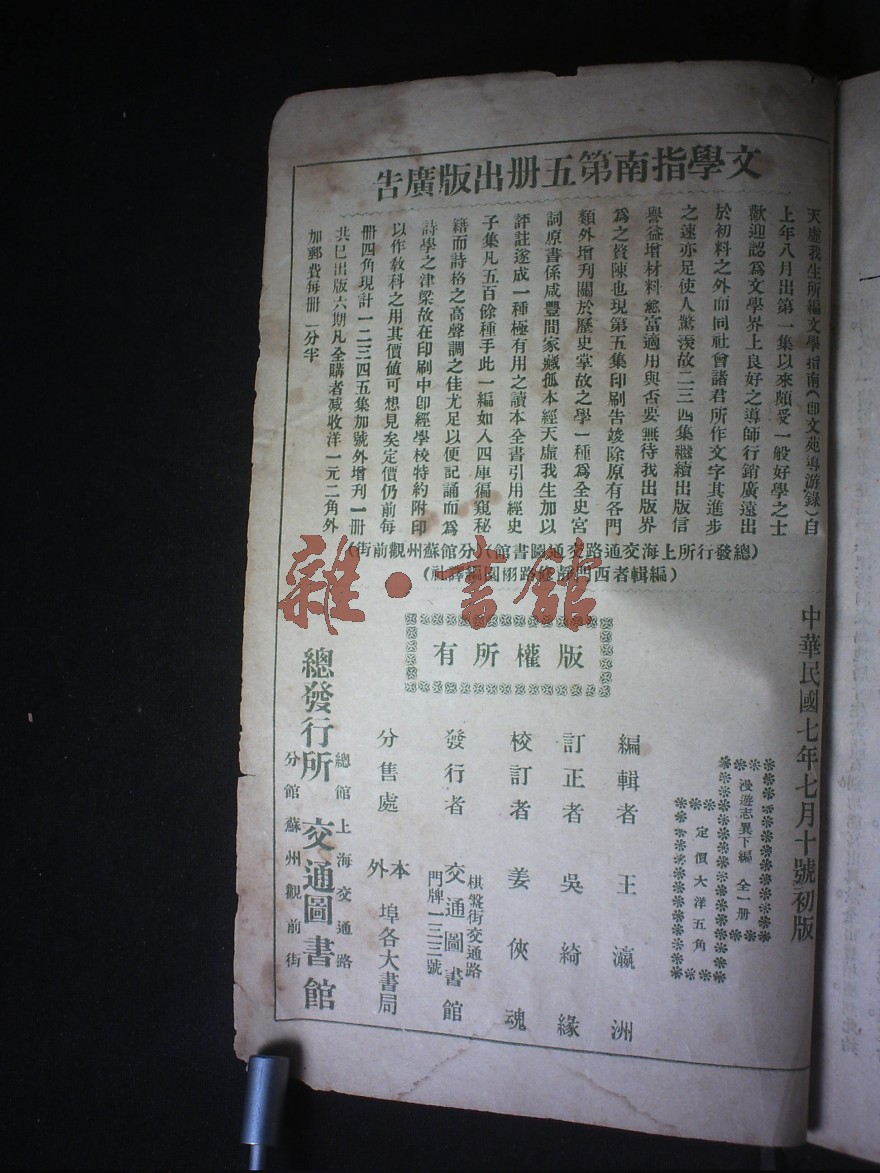 文學指南第五册出版廣告
天虛我生所編文學指南(卽文苑導游錄)自
上年八月出第一集以來頗受一般好學之士
歡迎認爲文學界上良好之導師行銷廣遠出
於初料之外而同社會諸君所作文字其進步
之速亦足使人驚羨故二三四集繼續出版信
譽益增材料愈富適用與否要無待我出版界
爲之贅陳也現第五集印刷告竣除原有各門
類外增刊關於歷史掌故之學一種爲全史宮
詞原書係咸豐間家藏孤本經天虛我生加以
評註遂成一種極有用之讀本全書引用經史
子集凡五百餘種手此一編如入四庫徧窺秘
籍而詩格之高聲調之佳尤足以便記誦而爲
詩學之津梁故在印刷中卽經學校特約附印
以作教科之用其價値可想見矣定價仍前每
册四角現計一二三四五集加號外增刊一册
共已出版六期凡全購者减收洋一元二角外
加郵費每册一分半
(總發行所上海交通路交通圖書館)(分館蘇州觀前街)
(編輯者西門靜修路栩園編譯社)
雜·書館
中華民國七年七月十號初版
漫遊志異下編 全一册
定價大洋五角
版權所有
編輯者 王瀛洲
訂正者 吳綺緣
校訂者 姜俠魂
發行者 交通圖書館
棋盤街交通路
門牌一二三號
分售處 本外埠各大書局
總發行所 交通圖書館
總館上海交通路
分館蘇州觀前街